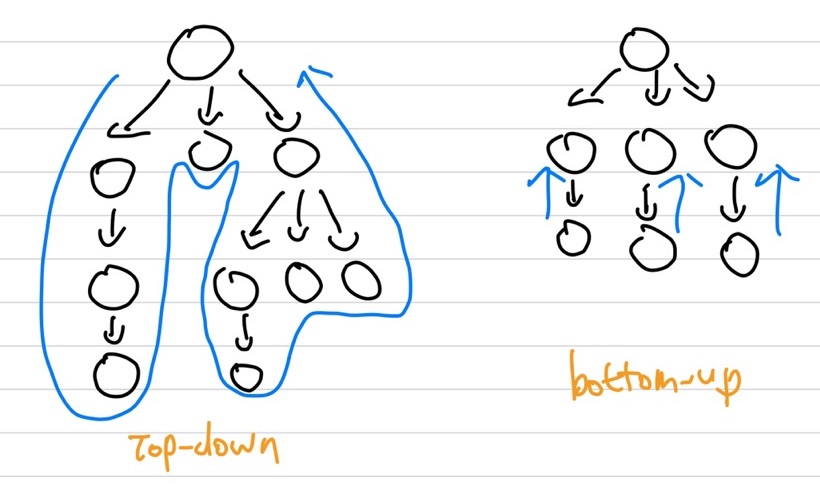 Top-down
bottom-up